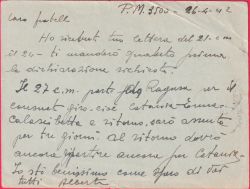 P.M. 3500 - 26-4-42
Caro fratello
Ho ricevuto tua lettera del 21. c.m.
ti manderò quanto prima
la dichiarazione richiesta.
Il 27 c.m. parto da Ragusa per il
consueto giro - cioè Catania - Enna -
Calassibetta e ritorno, sarò assente
per tre giorni. Al ritorno dovrò
ancora ripartire ancora per Catania.
Io sto benissimo come spero di voi
tutti